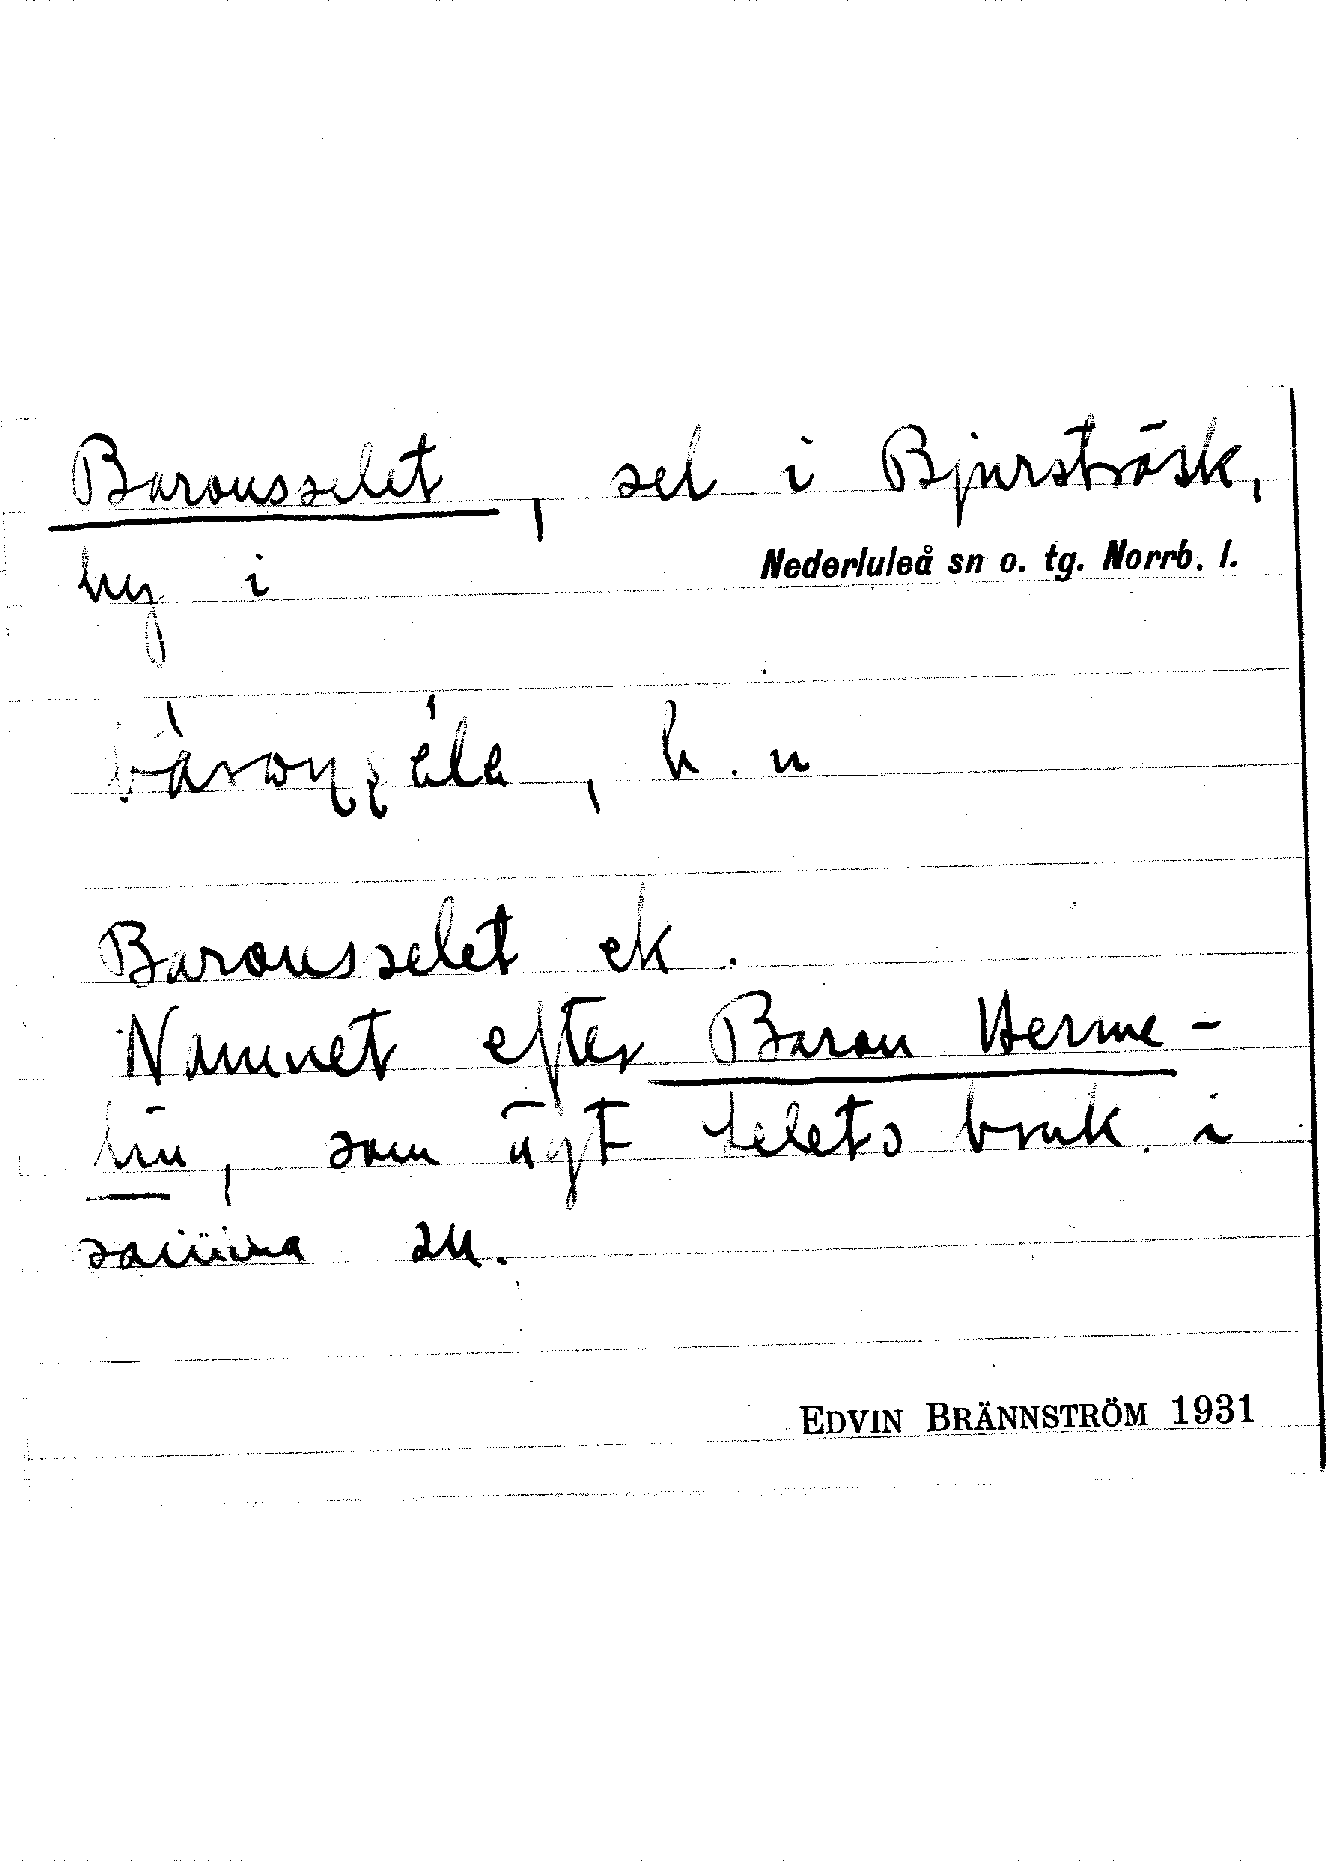 Baronsselet, sel i Bjursträsk,
by i Nederluleå sn o. tg. Norrb. l.
h. n
Baronsselet ek.
Namnet efter Baron Herme-
lin, som ägt Selets bruk i
samma sn.
EDVIN BRÄNNSTRÖM 1931